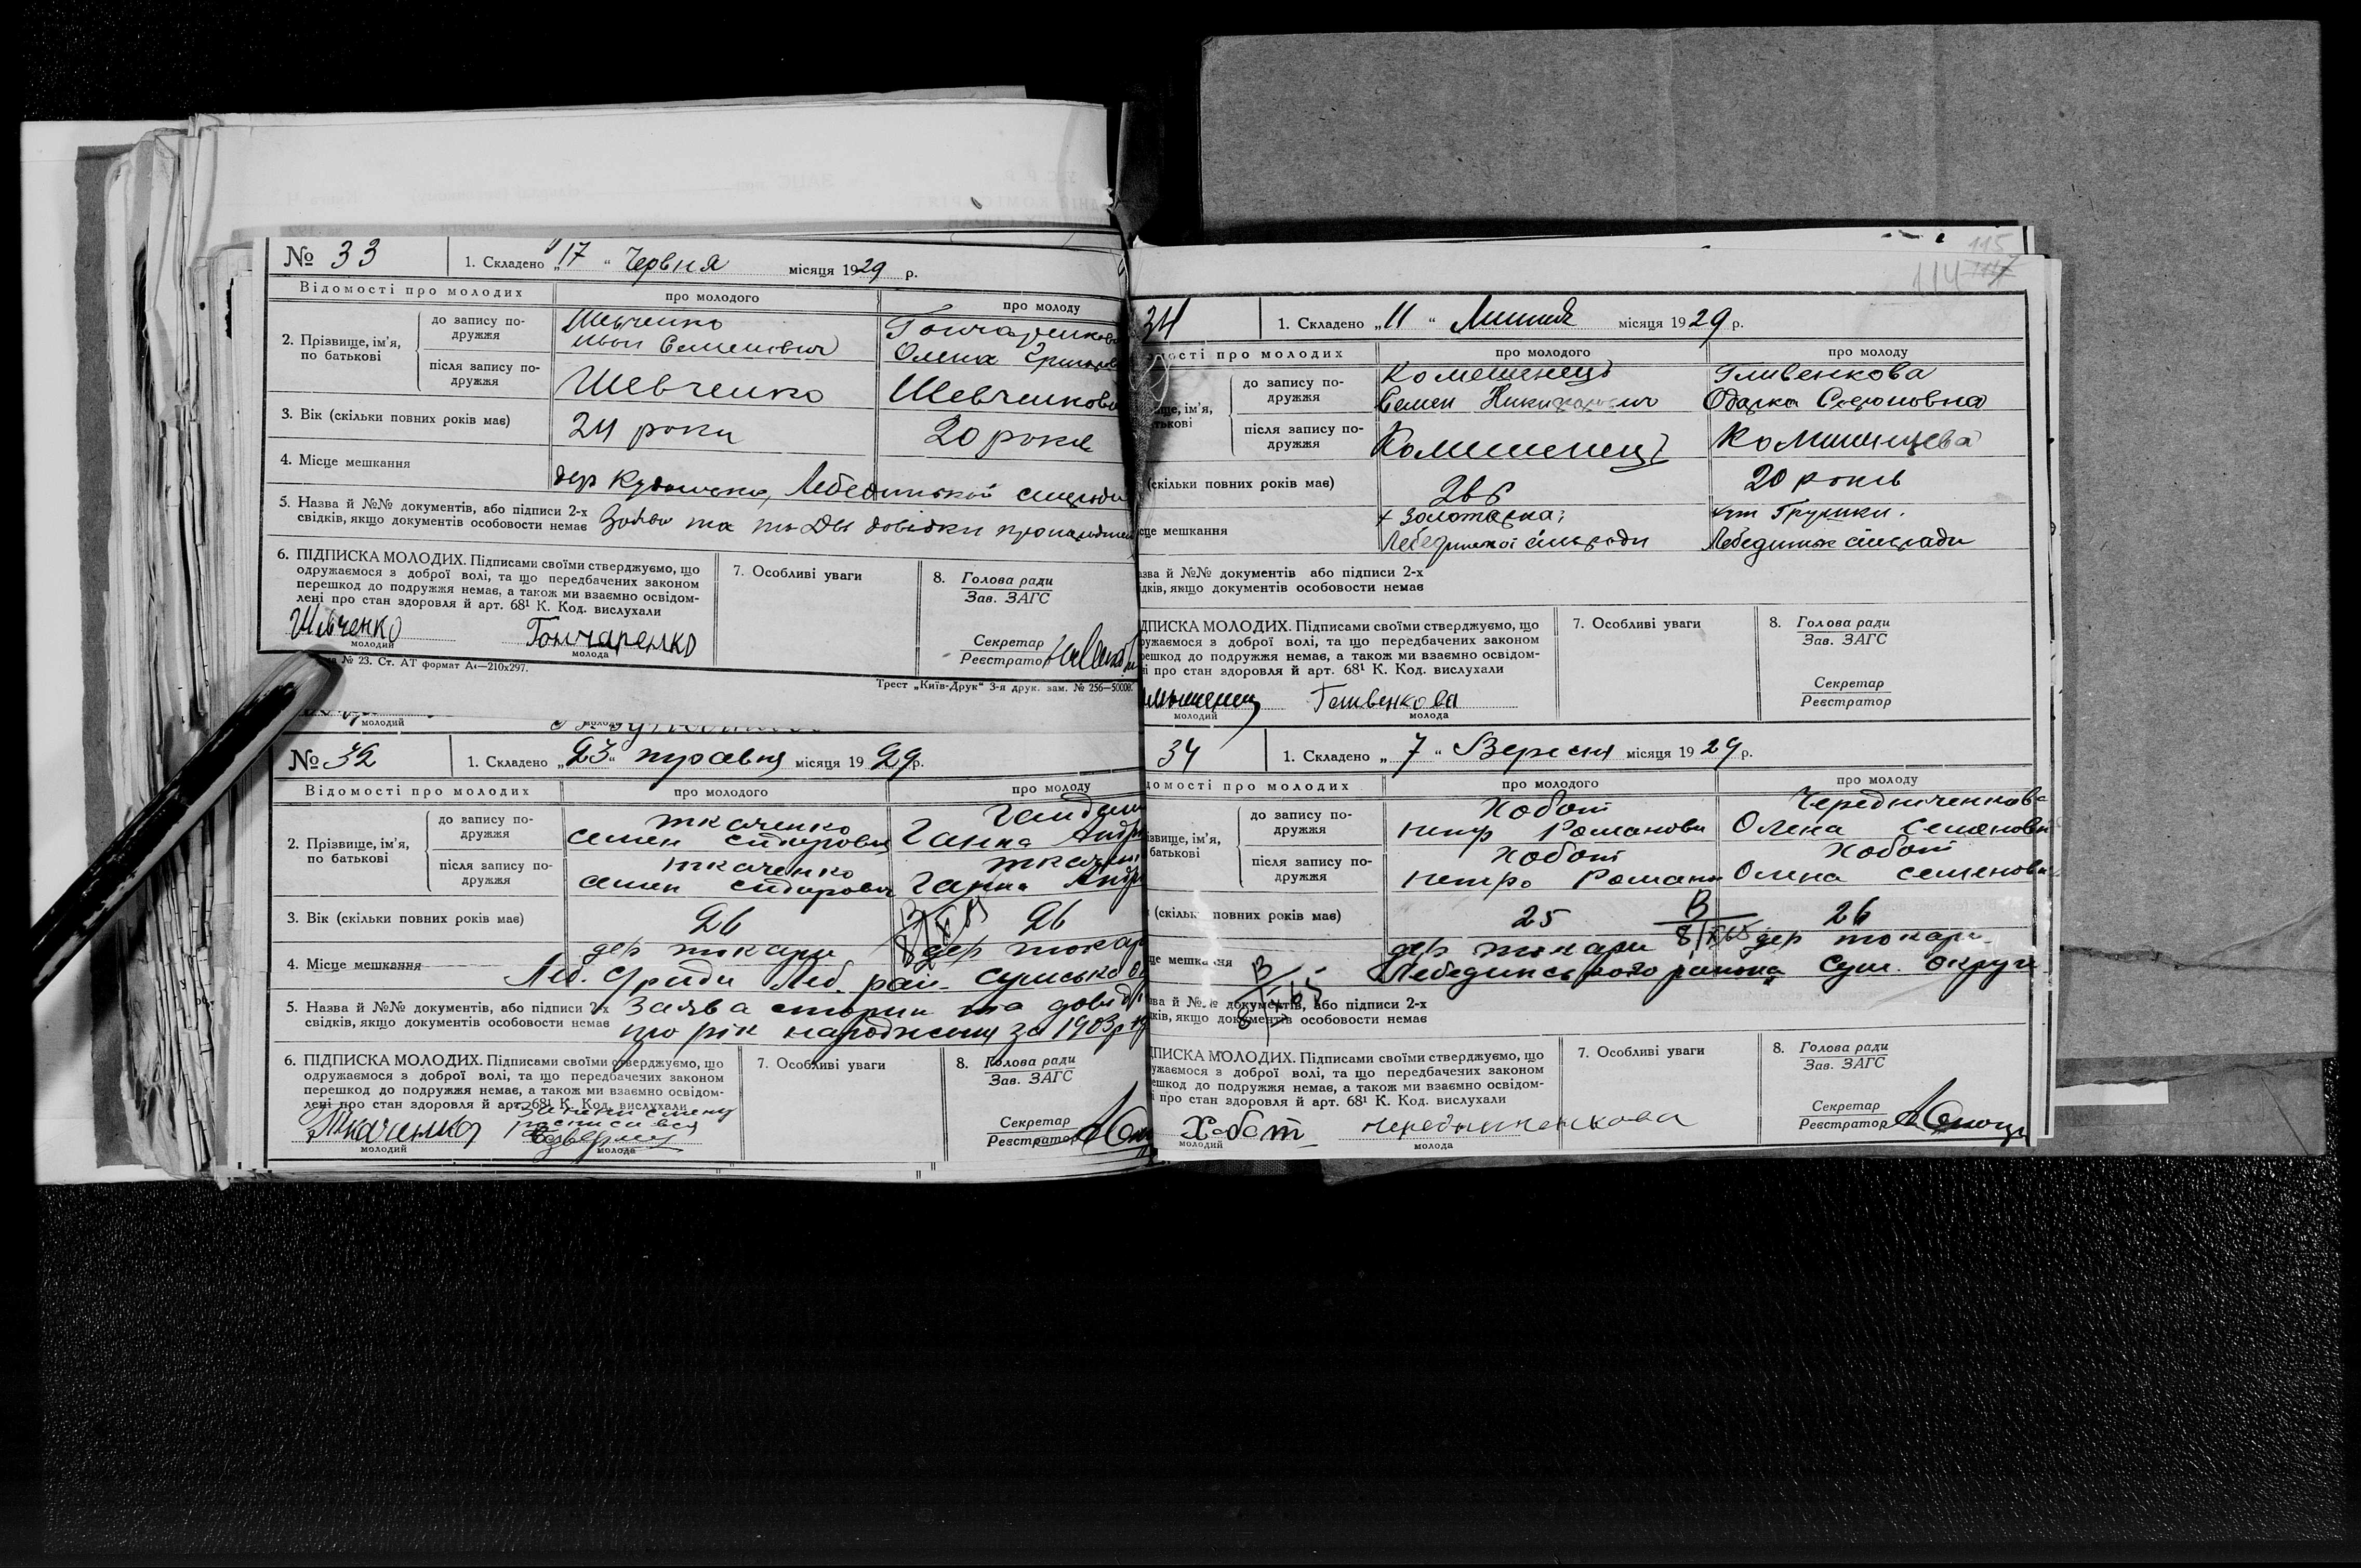 № 33
1. Складено „17“ Червня місяця 1929 р.
Відомості про молодих
про молодого
про молоду
2. Прізвище, ім'я, по батькові
до запису по-
дружжя
Шевченко
Иван Семенович
Гончаренкова
Олена
після запису по-
дружжя
Шевченко
Шевченкова
3. Вік (скільки повних років має)
24 роки
20 років
4. Місце мешкання
дер Лебединської сільради
5. Назва й №№ документів, або підписи 2-х
свідків, якщо документів особовости немає
Заява та довідки
6. ПІДПИСКА МОЛОДИХ. Підписами своїми стверджуємо, що
одружаємося з доброї волі, та що передбачених законом
перешкод до подружжя немає, а також ми взаємно освідом-
лені про стан здоровля й арт. 68¹ К. Код. вислухали
Шевченко
молодий
Гончаренко
молода
7. Особливі уваги
8. Голова ради
Зав. ЗАГС
Секретар
Реєстратор
№ 23. Ст. АТ формат А₄—210х297.
Трест „Київ-Друк“ 3-я друк. зам. № 256—50000.
молодий
№ 32
1. Складено „23“ травня місяця 1929 р.
Відомості про молодих
про молодого
про молоду
2. Прізвище, ім'я,
по батькові
до запису по-
дружжя
ткаченко
семен сидорович
Ганна Андр
після запису по-
дружжя
ткаченко
семен сидорович
ткачен
Ганна Андр
3. Вік (скільки повних років має)
26
26
4. Місце мешкання
дер токари
дер токар
Леб. С/ради Леб. рай. Сумської
5. Назва й №№ документів, або підписи 2-х
свідків, якщо документів особовости немає
Заява сторін та довідк
про рік народження за 1903 р
6. ПІДПИСКА МОЛОДИХ. Підписами своїми стверджуємо, що
одружаємося з доброї волі, та що передбачених законом
перешкод до подружжя немає, а також ми взаємно освідом-
лені про стан здоровля й арт. 68¹ К. Код. вислухали
Ткаченко
молодий
расписався
молода
7. Особливі уваги
8. Голова ради
Зав. ЗАГС
Секретар
Реєстратор
115
114
34
1. Складено „11“ Липня місяця 1929 р.
ості про молодих
про молодого
про молоду
ім'я,
до запису по-
дружжя
Комешенець
Семен
Гливенкова
Одарка
після запису по-
дружжя
Комишенець
Комишенцева
(скільки повних років має)
26 р
20 років
мешкання
х Золотарка;
Лебединської сільради
хут Грушки.
Лебединськ сільради
зва й №№ документів або підписи 2-х
дків, якщо документів особовости немає
ДПИСКА МОЛОДИХ. Підписами своїми стверджуємо, що
ружаємося з доброї волі, та що передбачених законом
решкод до подружжя немає, а також ми взаємно освідом-
і про стан здоровля й арт. 68¹ К. Код. вислухали
молодий
Гливенкова
молода
7. Особливі уваги
8. Голова ради
Зав. ЗАГС
Секретар
Реєстратор
34
1. Складено „7“ Вересня місяця 1929 р.
домості про молодих
про молодого
про молоду
звище, ім'я,
батькові
до запису по-
дружжя
Хобот
петр Романови
Чередниченкова
Олена семеновн
після запису по-
дружжя
Хобот
петро Романи
Хобот
Олена семеновн
(скільки повних років має)
25
26
це мешкання
дер токари
дер токари
Лебединського района Сум. округи
ва й №№ документів, або підписи 2-х
ків, якщо документів особовости немає
ДПИСКА МОЛОДИХ. Підписами своїми стверджуємо, що
ужаємося з доброї волі, та що передбачених законом
ешкод до подружжя немає, а також ми взаємно освідом-
і про стан здоровля й арт. 68¹ К. Код. вислухали
Хобот
молодий
чередниченкова
молода
7. Особливі уваги
8. Голова ради
Зав. ЗАГС
Секретар
Реєстратор